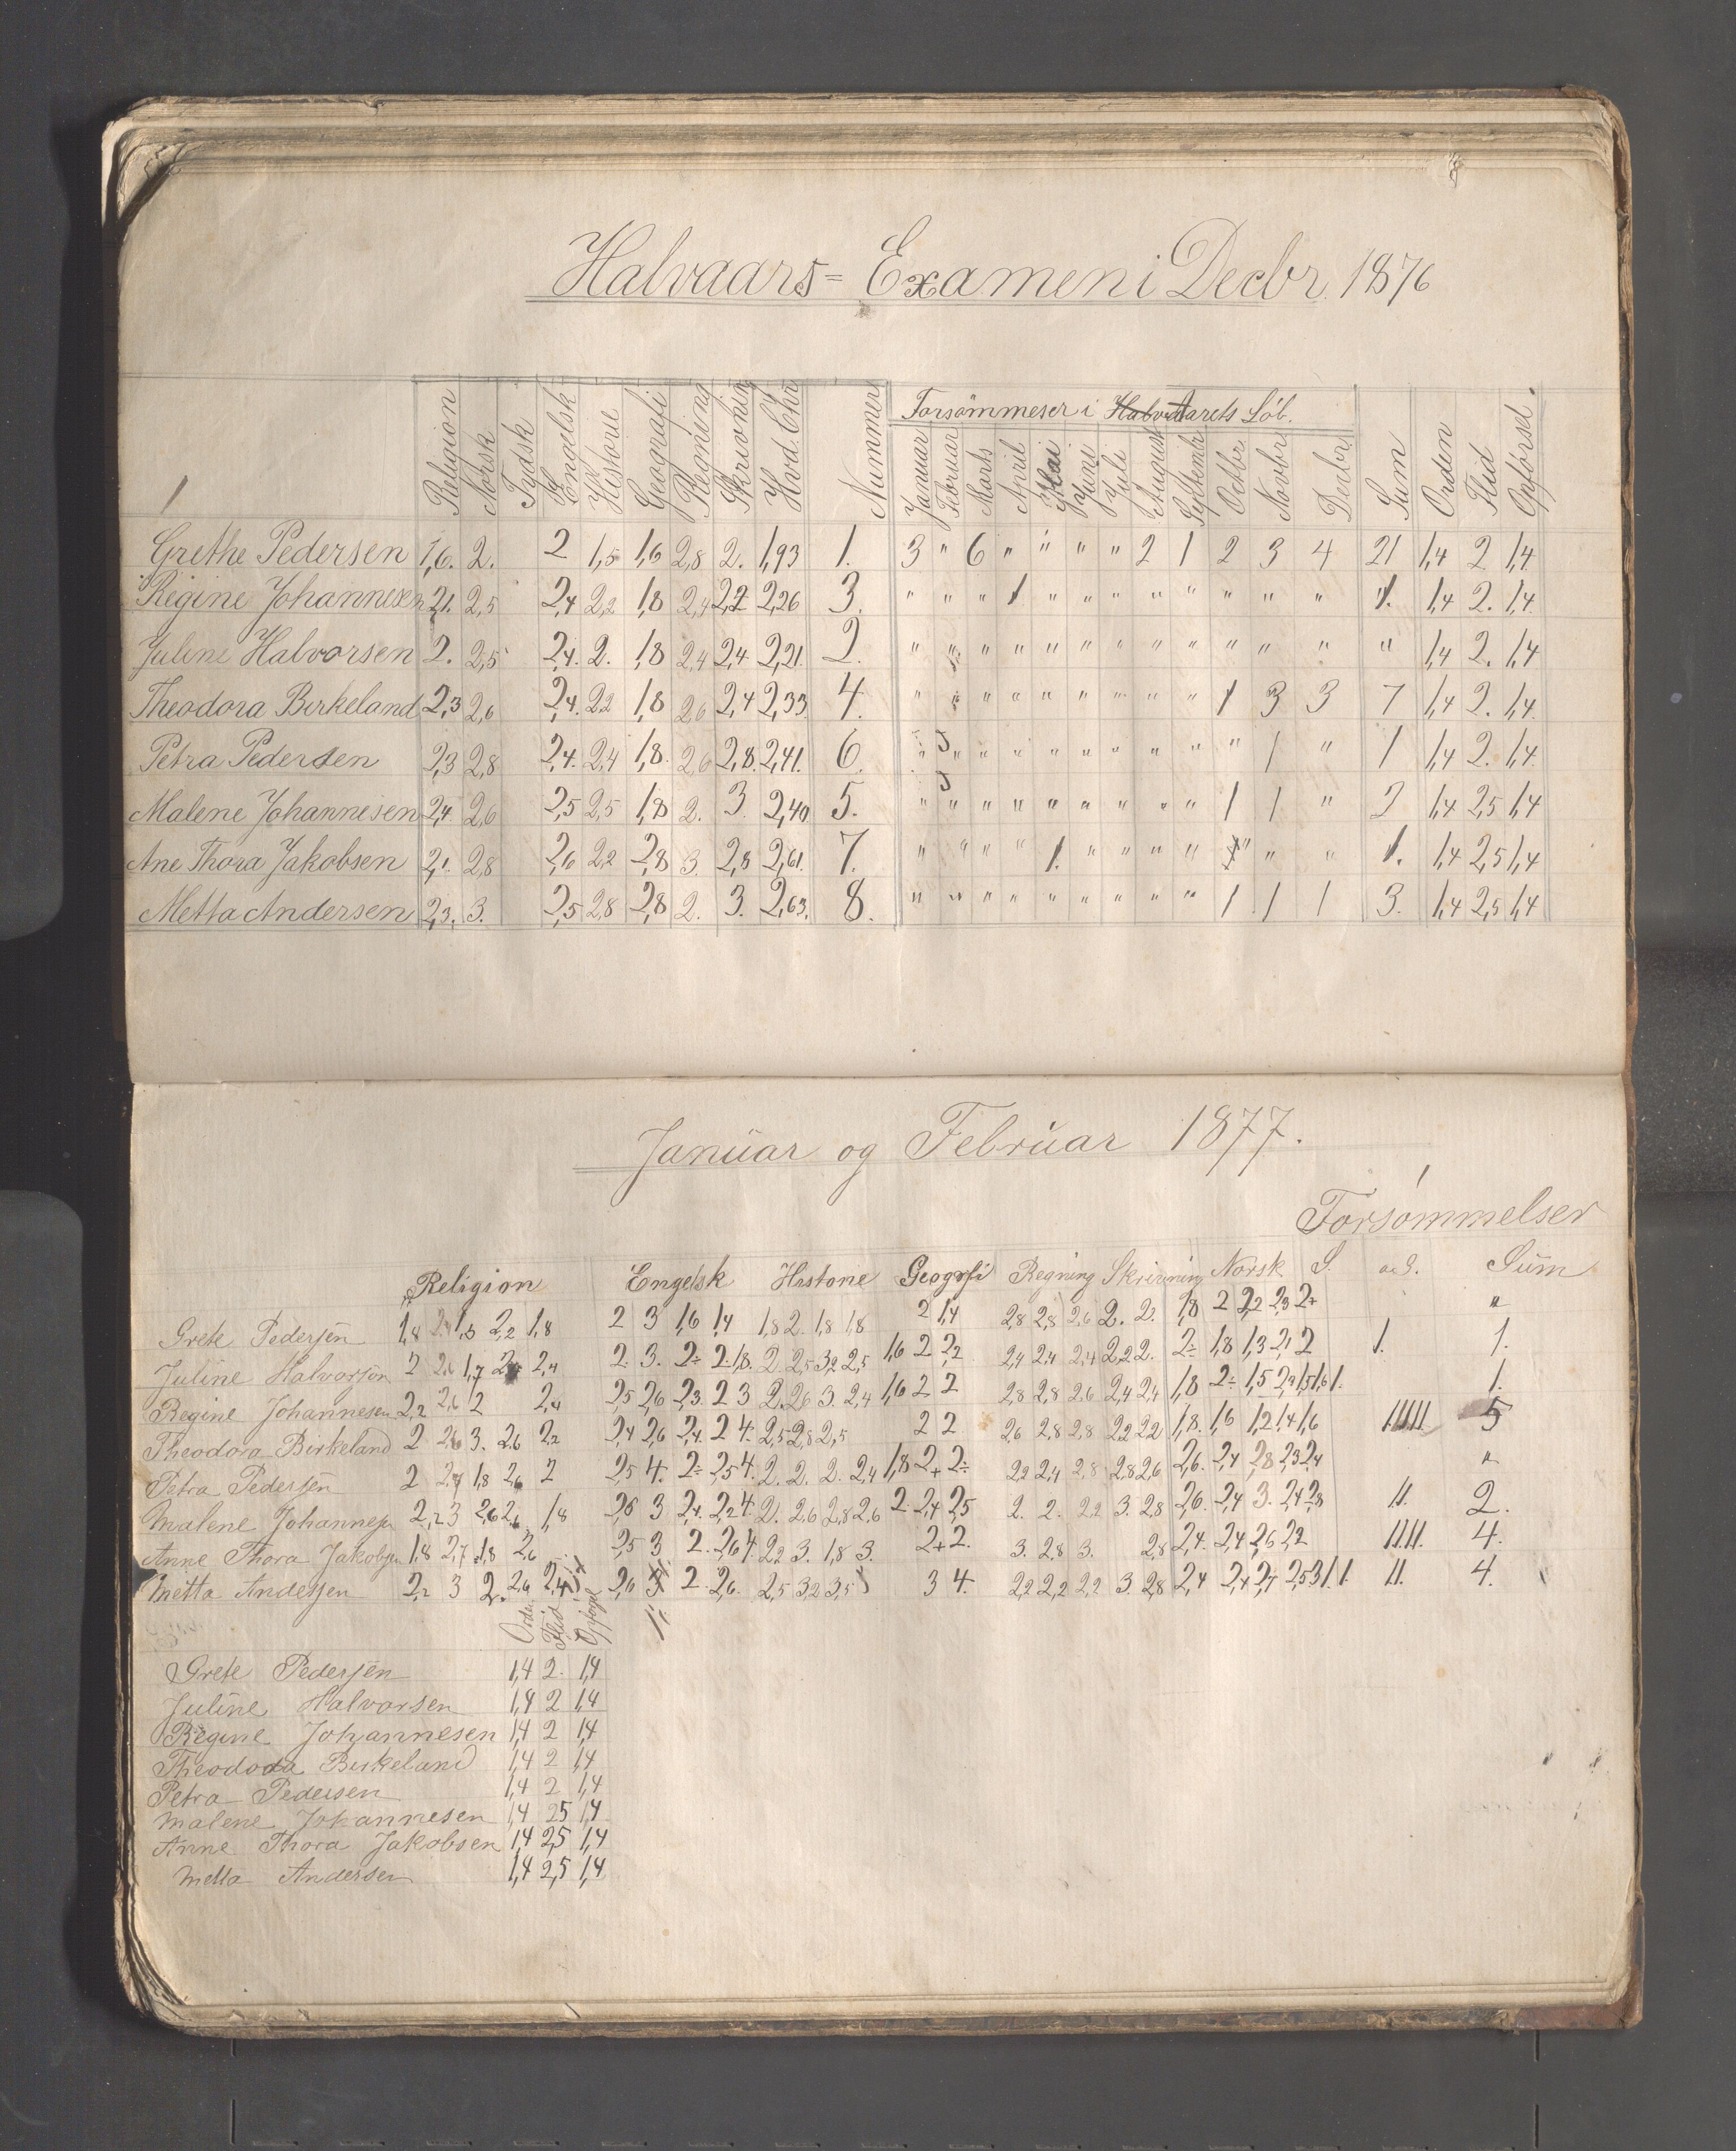 Halvaars= Examen i Decbr. 1876
Religion Norsk Tydsk Engelsk Historie Geografi Regning Skrivning Hvd. Chr Nummer Forsömmeser i Halvaarets Löb. Januar Februar Marts April Mai Juni Juli August Septembr Octbr. Novbr Decbr. Sum Orden Flid Opförsel.
Grethe Pedersen 1,6. 2. 2 1,5 1,6 2,8 2. 1,93 1. 3 " 6 " " " " 2 1 2 3 4 21 1,4 2 1,4
Regine Johannesen 2,1. 2,5 2,4 2,2 1,8 2,4 2,2 2,26 3. " " " 1 " " " " " " " " 1. 1,4 2. 1,4
Juline Halvorsen 2. 2,5 2,4. 2. 1,8 2,4 2,4 2,21. 2. " " " " " " " " " " " " " 1,4 2. 1,4
Theodora Birkeland 2,3 2,6 2,4. 2,2 1,8 2,6 2,4 2,33. 4. " " " " " " " " " 1 3 3 7 1,4 2. 1,4.
Petra Pedersen 2,3 2,8 2,4. 2,4 1,8. 2,6 2,8. 2,41. 6. " " " " " " " " " " 1 " 1 1,4 2. 1,4.
Malene Johannesen 2,4. 2,6 2,5 2,5 1,8 2. 3. 2,40. 5. " " " " " " " " " 1 1 " 2 1,4 2,5 1,4
Ane Thora Jakobsen 2,1. 2,8 2,6 2,2 2,8 3. 2,8 2,61. 7. " " " " 1. " " " " " " " 1. 1,4 2,5 1,4
Metta Andersen 2,3. 3. 2,5 2,8 2,8 2. 3. 2,63. 8. " " " " " " " " " 1 1 1 3. 1,4 2,5 1,4
Januar og Februar 1877.
Forsömmelser
Religion Engelsk Historie Geografi Regning Skrivning Norsk S. Sum
Grete Pedersen 1,8 1,5 2,2 1,8 2 3 1,6 1,4 1,8 2. 1,8 1,8 2 1,4 2,8 2,8 2,6 2. 2. 1,8 2 2,2 2,3 2+ "
Juline Halvorsen 2 2,6 1,7 2,4 2. 3. 2÷ 2. 1,8. 2. 2,5 3,2 2,5 1,6 2 2,2 2,4 2,4 2,4 2,2 2. 2÷ 1,8 1,3 2 1. 1.
Regine Johannesen 2,2 2,6 2 2,4 2,5 2,6 2,3. 2 3 2. 2,6 3. 2,4 1,6 2 2 2,8 2,8 2,6 2,4 2,4 1,8 2÷ 1,5 1.
Theodora Birkeland 2 2,6 3. 2,6 2,2 2,4 2,6 2,4. 2 4. 2,5 2,8 2,5 2 2 2,6 2,8 2,8 2,2 2,2 1,8. 1,6 1,2 1,4 1,6 11111. 5
Petra Pedersen 2 1,8 2,6 2 2,5 4. 2÷ 2,5 4. 2. 2. 2. 2,4 1,8 2+ 2÷ 2,2 2,4 2,8 2,8 2,6 2,6. 2,4 2,8 2,3 2,4 "
Malene Johannesen 2,2 3 2,6 2,6 1,8 2,6 3 2,4. 2,2 4. 2. 2,6 2,8 2,6 2. 2,4 2,5 2. 2. 2,2 3. 2,8 2,6. 2,4 3. 2,4 2,8 11. 2.
Anne Thora Jakobsen 1,8 2,7 1,8 2,6 2,5 3. 2. 2,6 4. 2,2 3. 1,8 3. 2+ 2. 3. 2,8 3. 2,8 2,4. 2,4 2,6 2,2 1111. 4.
Metta Andersen 2,2 3 2. 2,6 2,4 2,6 2. 2,6. 2,5 3,2 3,5 3 4. 2,2 2,2 2,2 3. 2,8 2,4 2,4 2,7 2,5 3 1 1. 11. 4.
Orden Flid Opførsel
Grete Pedersen 1,4 2. 1,4
Juline Halvorsen 1,4 2 1,4
Regine Johannesen 1,4 2 1,4
Theodora Birkeland 1,4 2 1,4
Petra Pedersen 1,4 2 1,4
Malene Johannesen 1,4 2,5 1,4
Anne Thora Jakobsen 1,4 2,5 1,4
Metta Andersen 1,4 2,5 1,4